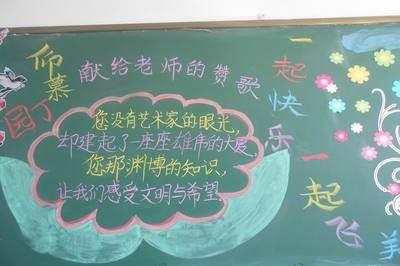 仰慕
园丁
献给老师的赞歌
您没有艺术家的眼光,
却建起了一座座雄伟的大厦,
您那渊博的知识,
让我们感受文明与希望.
一起快乐
一起飞